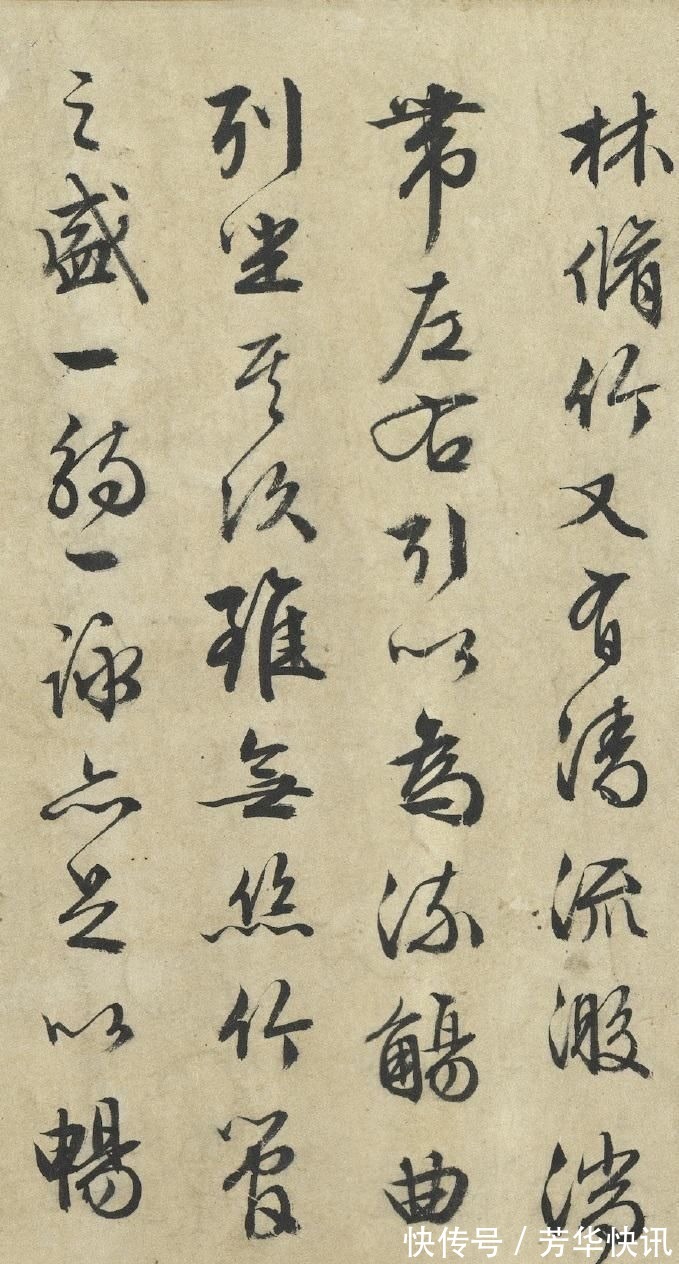 林脩竹又有清流激湍
帶左右引以為流觴曲
列坐其次雖無絲竹管
之盛一觴一詠亦足以暢
快传号 / 芳华快讯